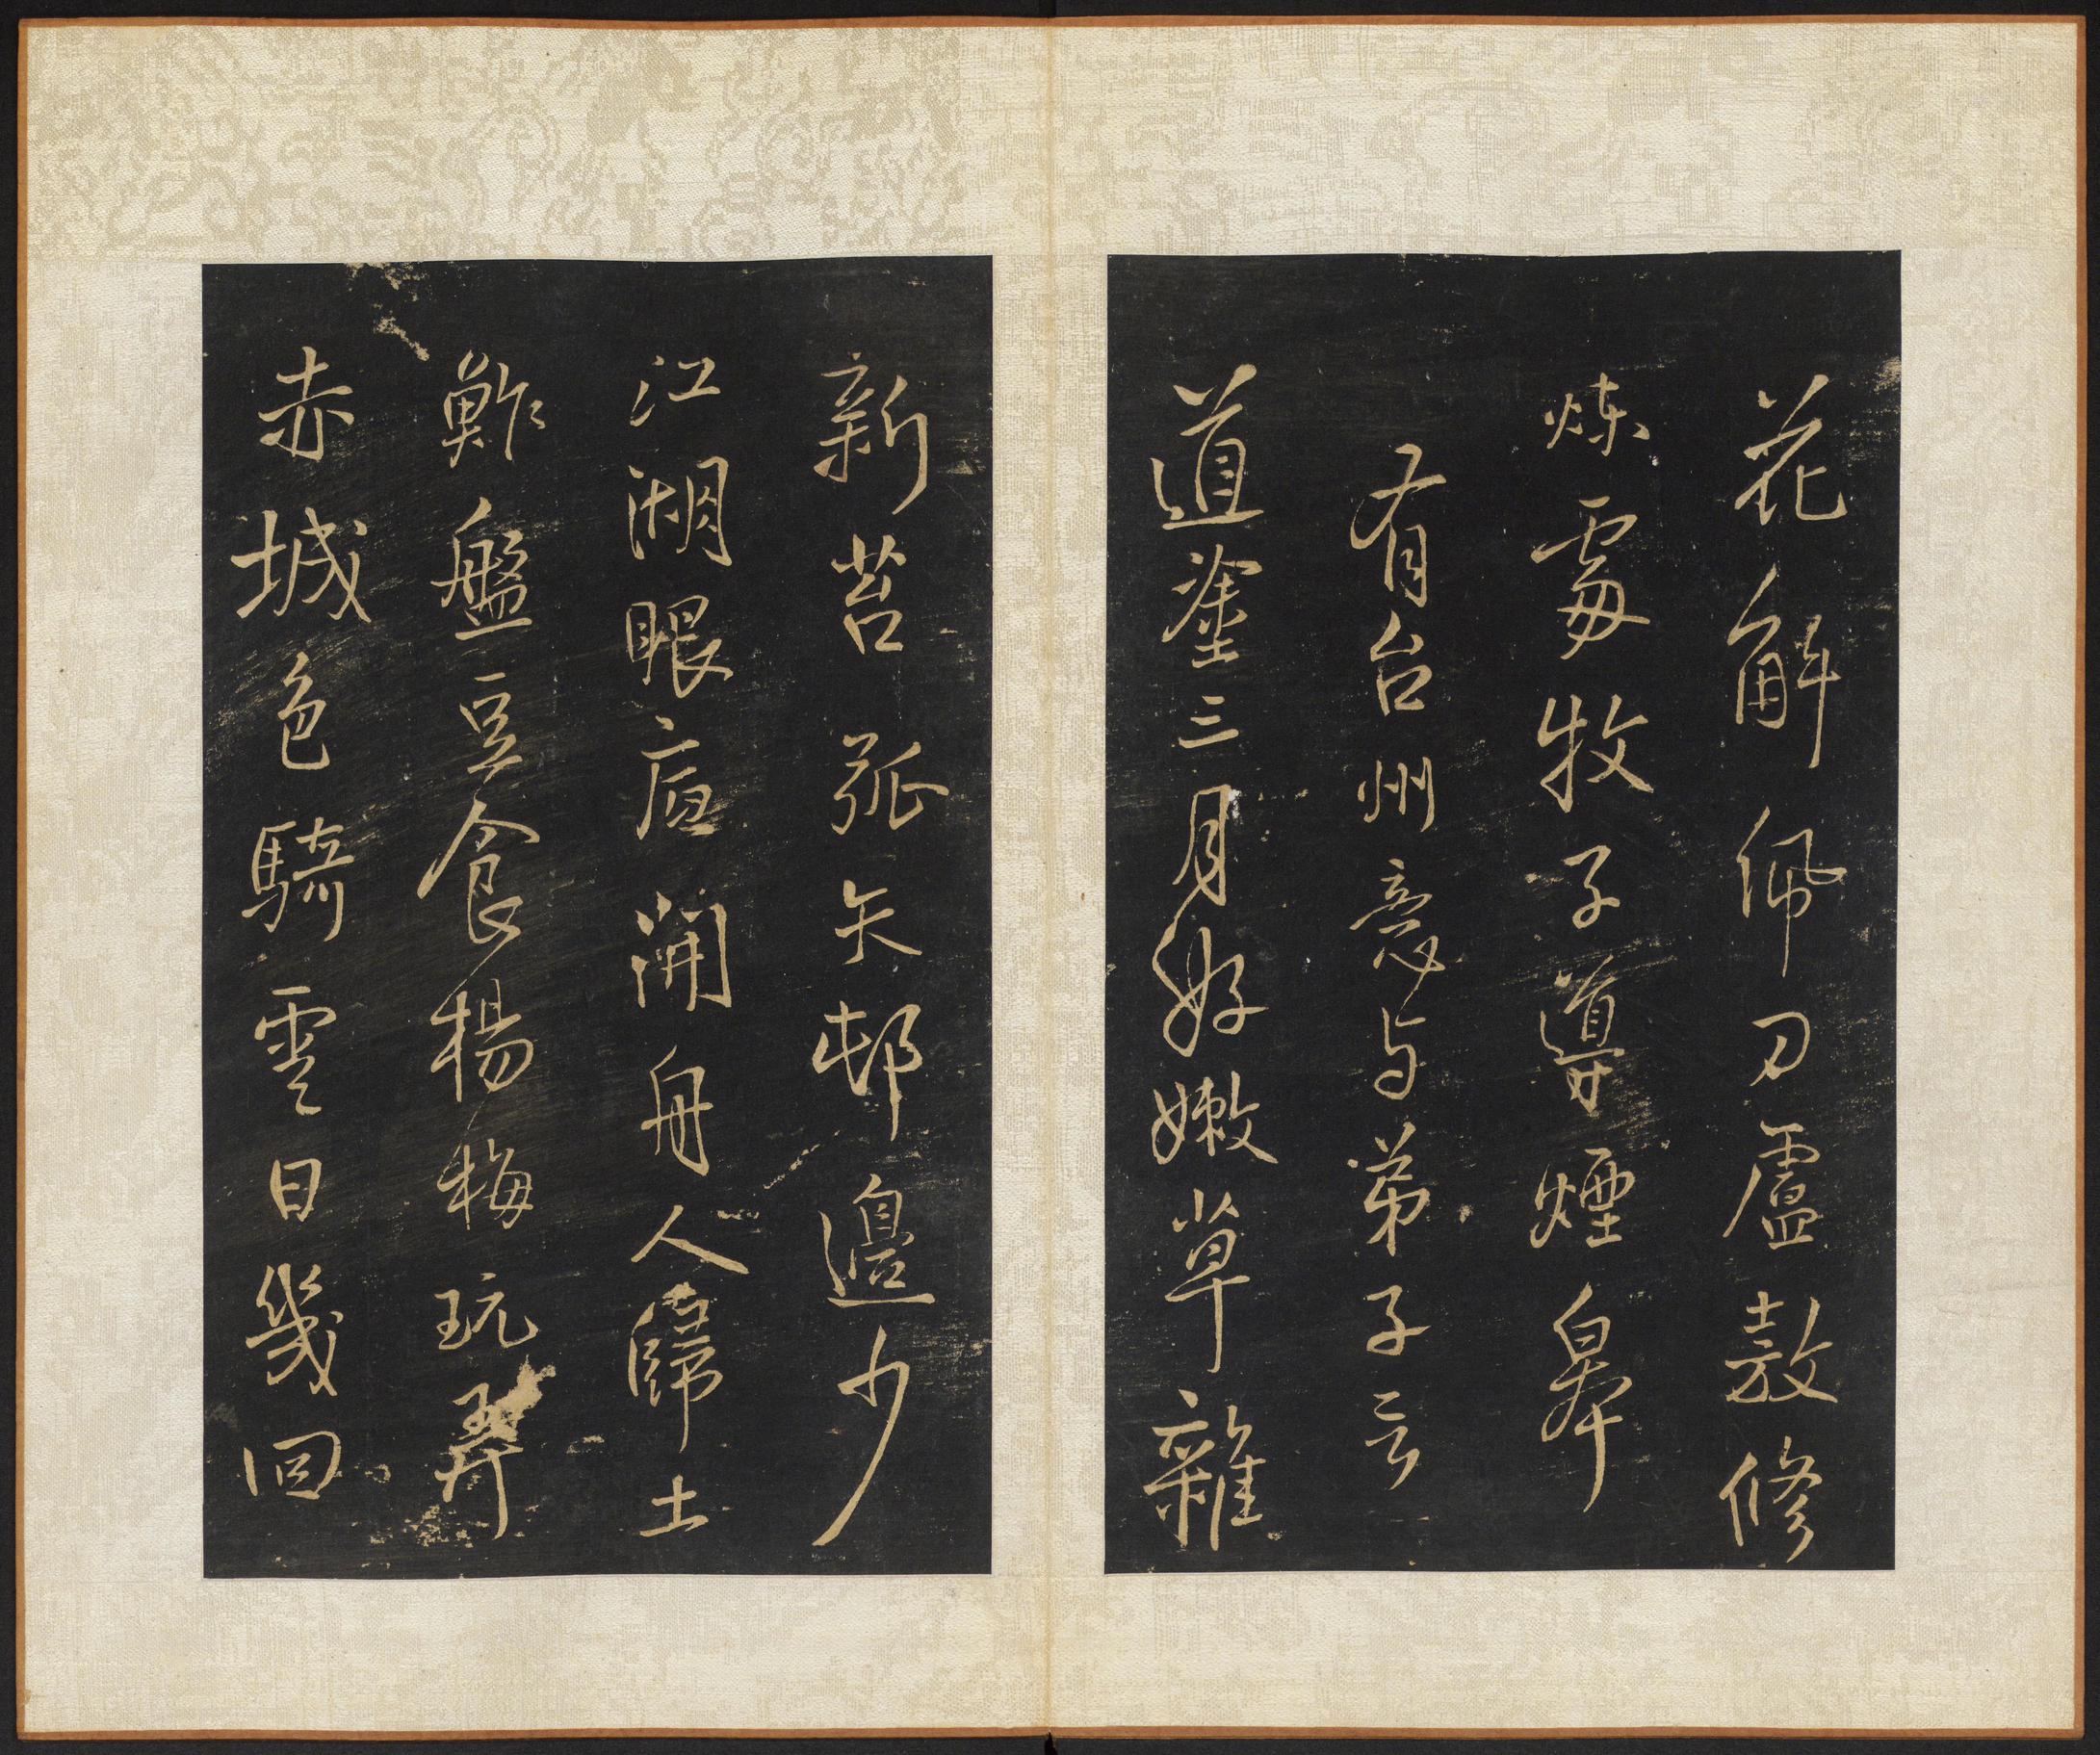 花解佩刀盧敖修
煉處牧子導煙皋
有台州意与弟子云
道塗三月好嫩草雜
新苔弧矢邨邊少
江湖眼底開舟人歸土
鮓盤豆食楊梅玩弄
赤城色騎雲日幾回